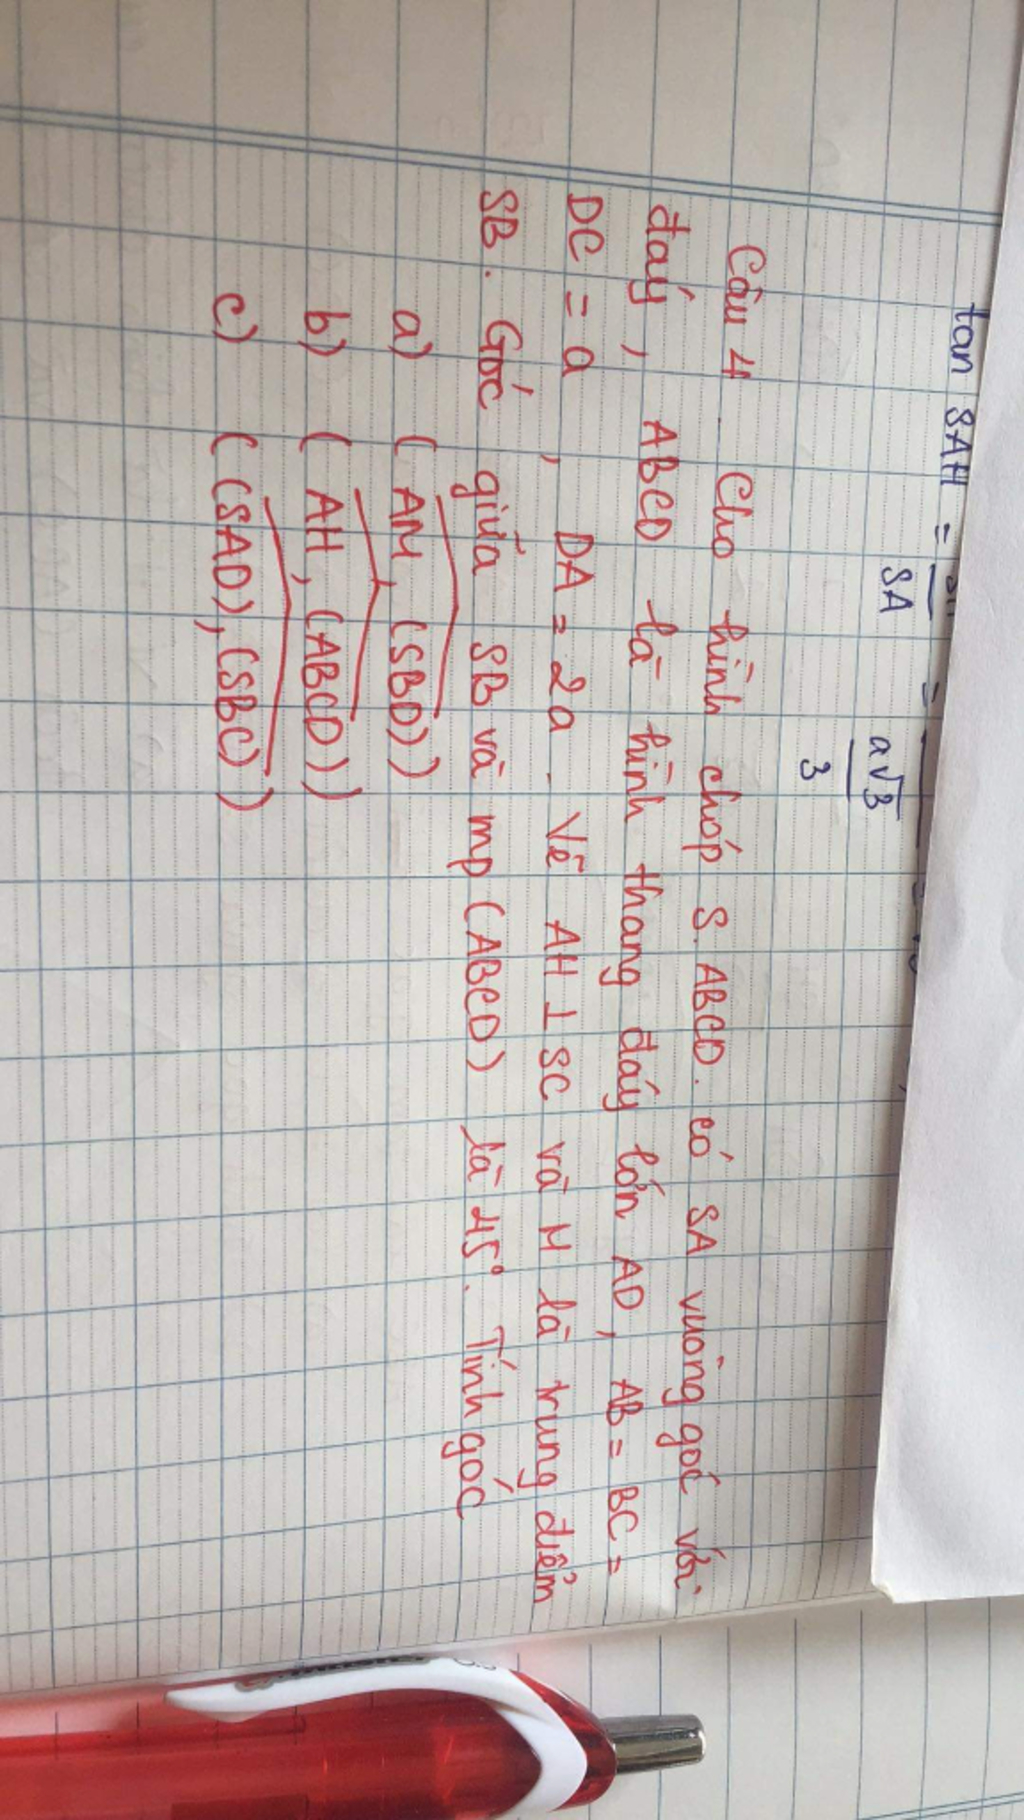 tan SAH =
SA
=
a√3
3
Câu 4. Cho hình chóp S.ABCD. có SA vuông góc với
đáy, ABCD là hình thang đáy lớn AD, AB = BC =
DC = a, DA = 2a. Vẽ AH ⊥ SC và M là trung điểm
SB. Góc giữa SB và mp (ABCD) là 45°. Tính góc
a) (AM, (SBD))
b) (AH, (ABCD))
c) ((SAD), (SBC))